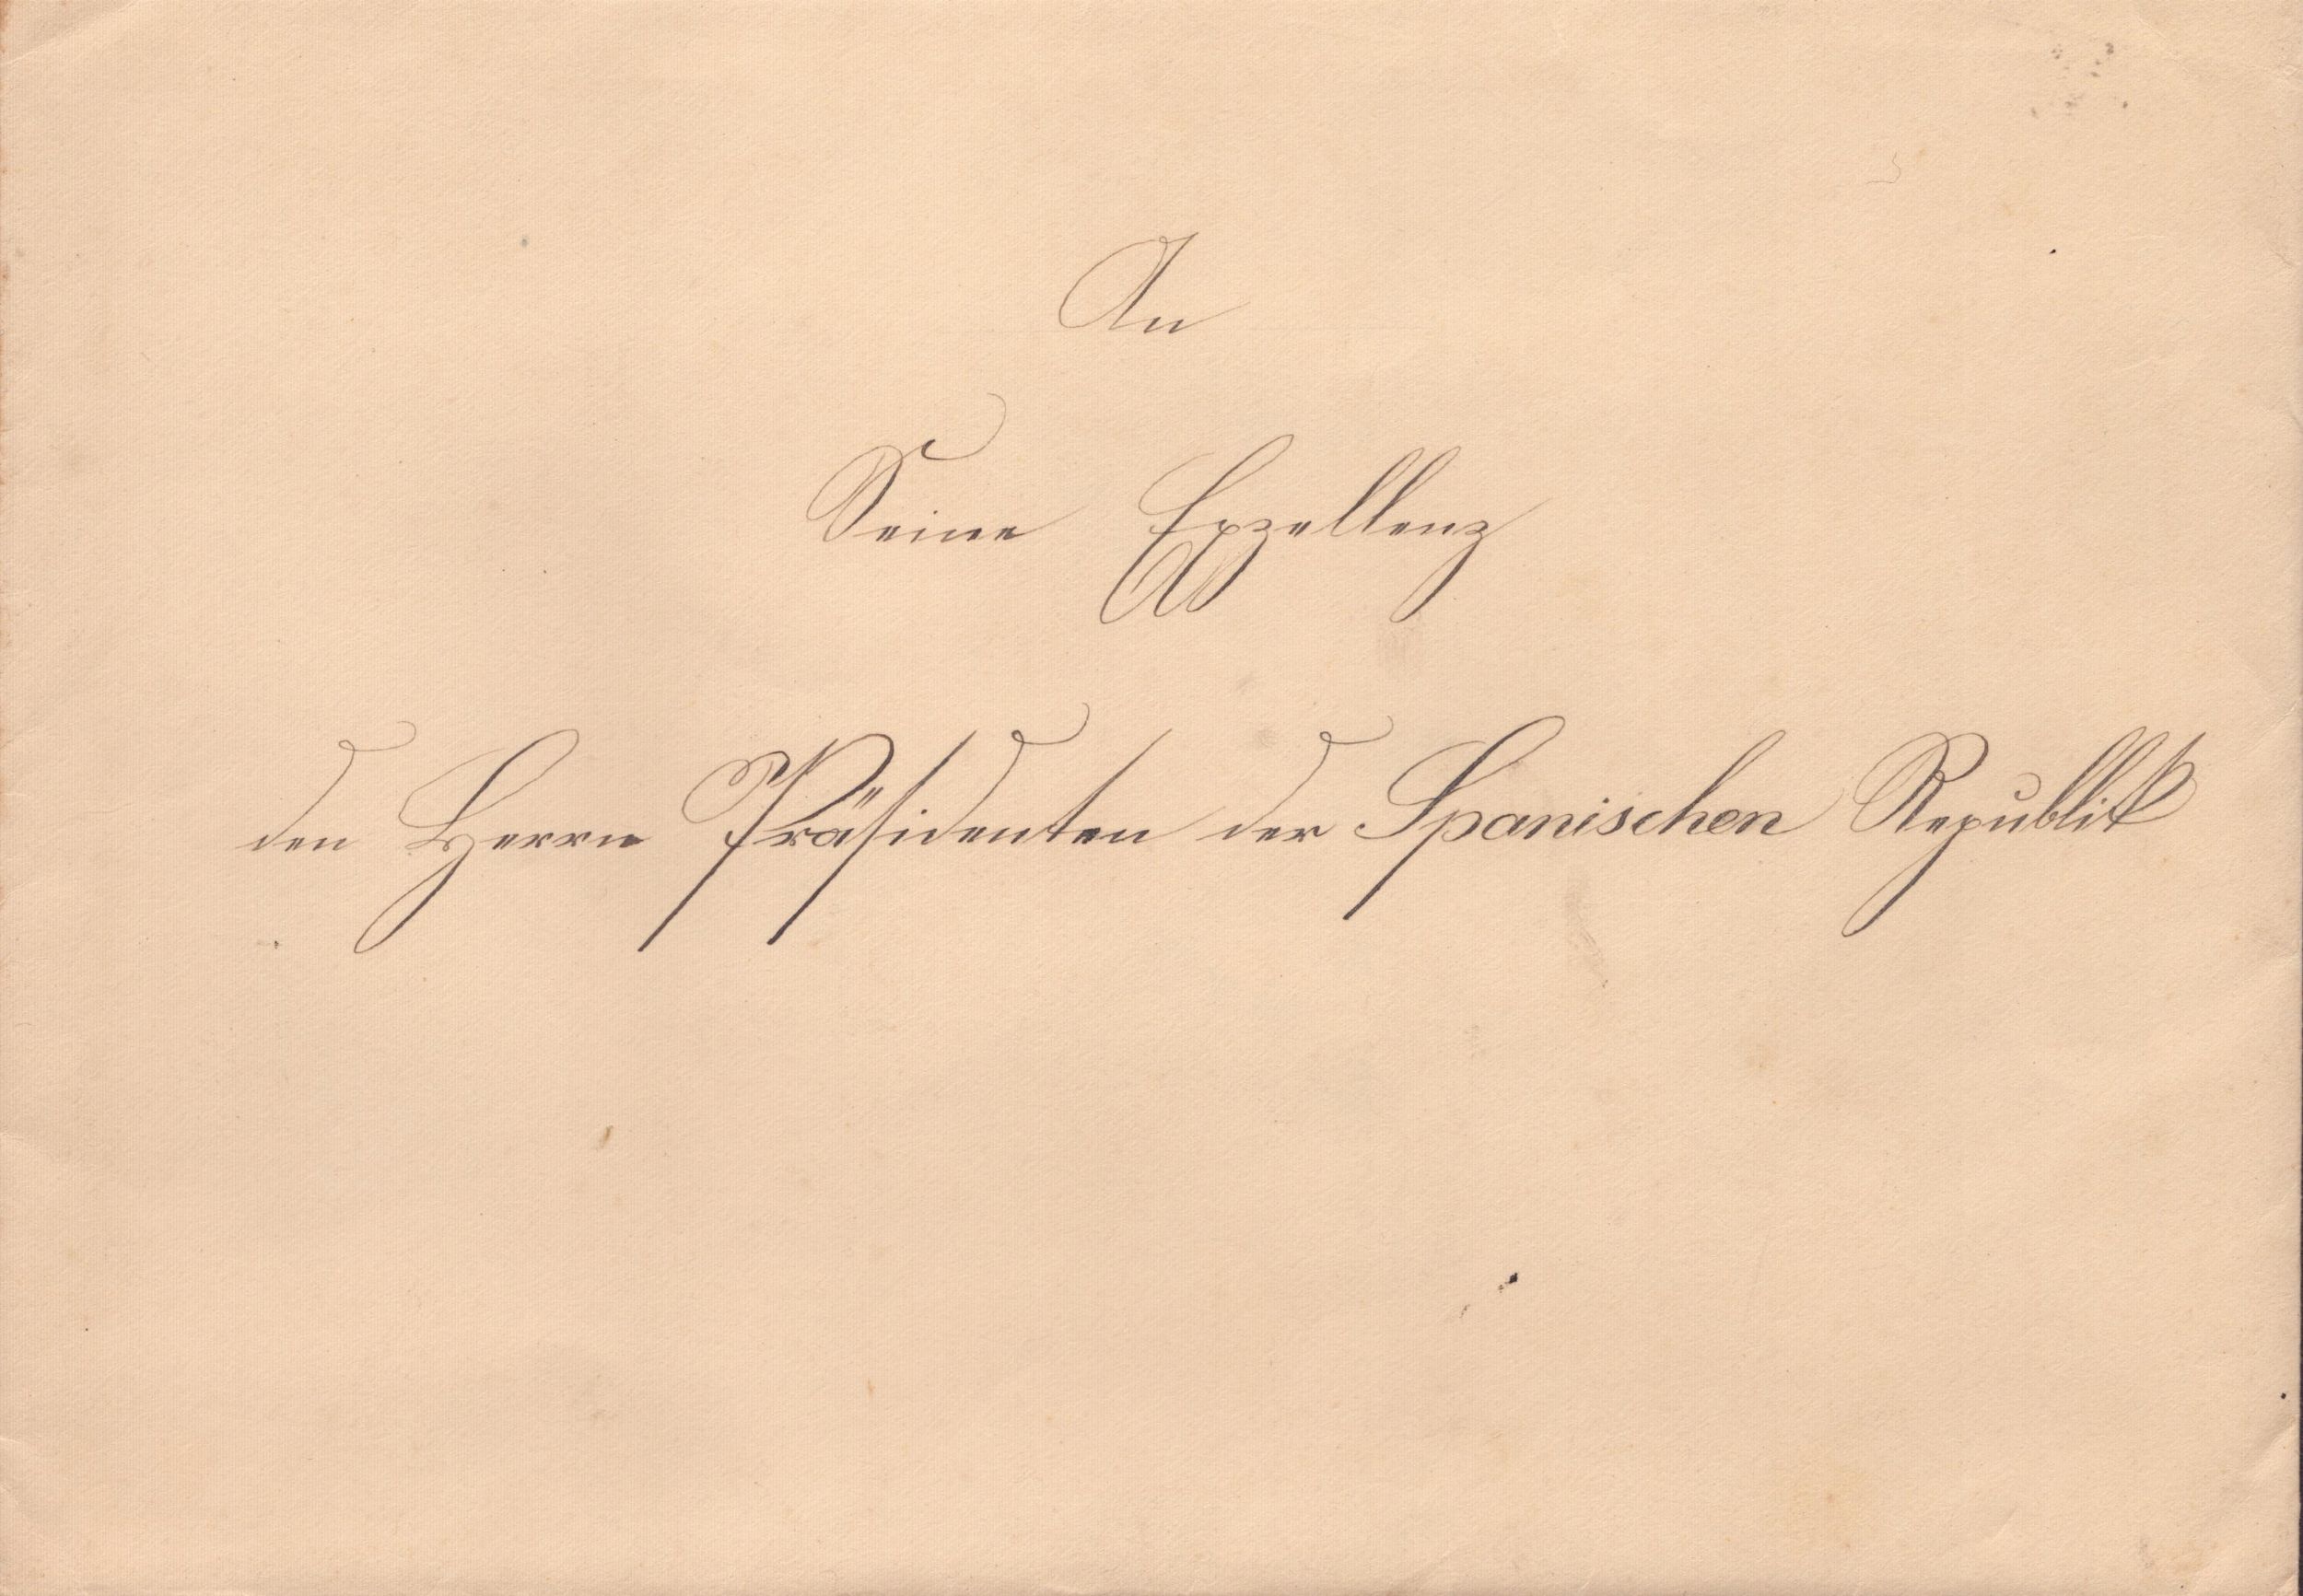 An
Seine Exzellenz
den Herrn Präsidenten der Spanischen Republik